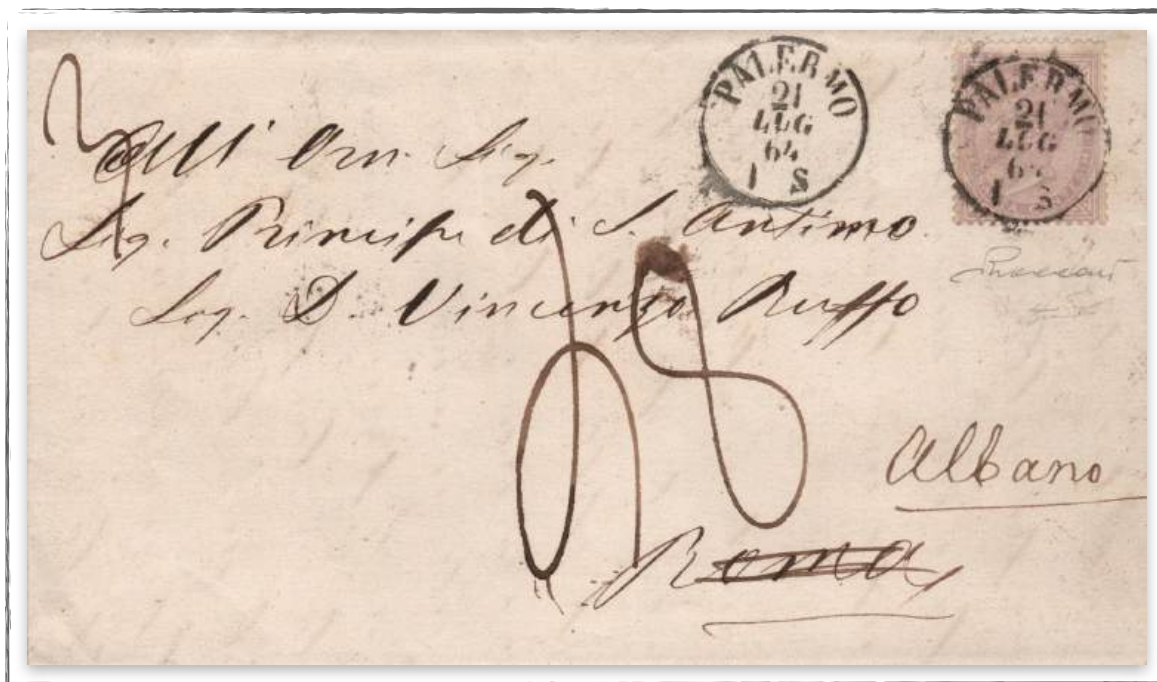 PALERMO
21
LUG
64
1 S
PALERMO
21
LUG
64
1 S
All' Orn. Sig.
Sig. Principe di S. Antimo
Sig. D. Vincenzo Ruffo
68
Albano
Roma